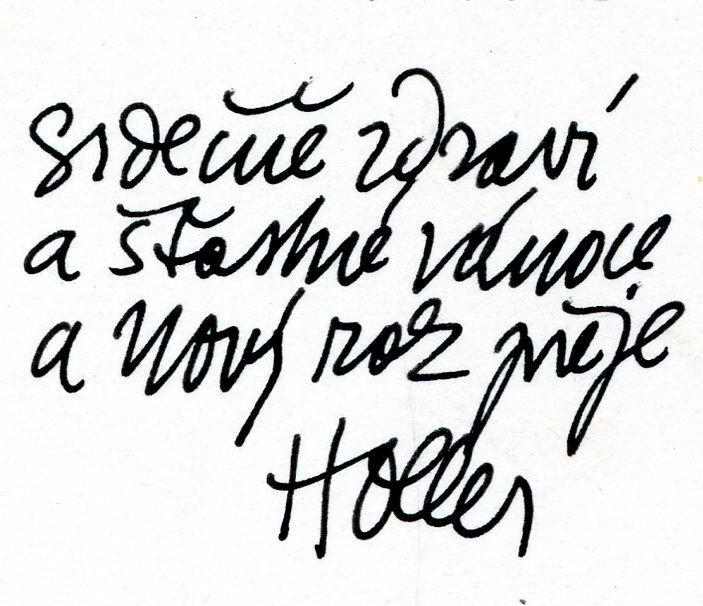 Srdečně zdraví
a šťastné vánoce
a Nový rok přeje
Holler